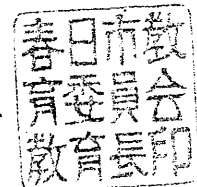 春日市教
育委員会
教育長印